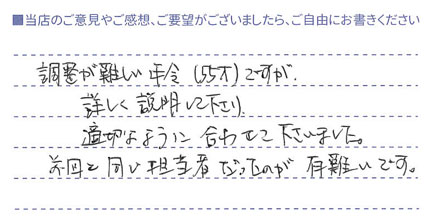 ■当店のご意見やご感想、ご要望がございましたら、ご自由にお書きください
調整が難しい年令（55才）ですが、
詳しく説明して下さり、
適切なように合わせて下さいました。
前回と同じ担当者だったのが有難いです。